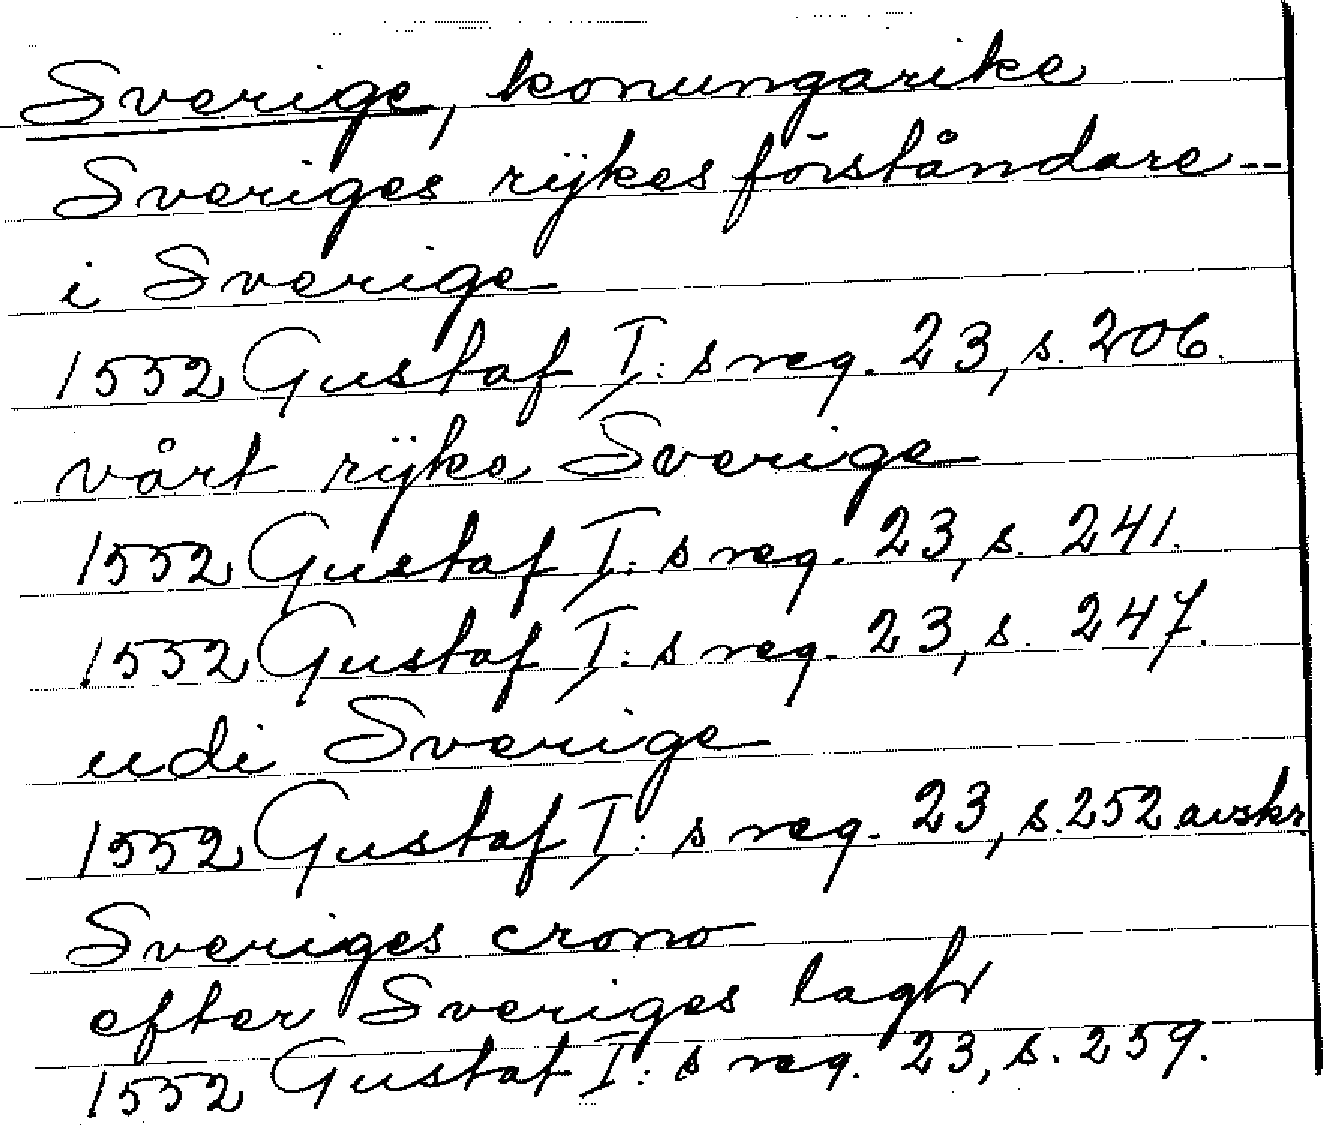 Sverige, konungarike
Sveriges rijkes förståndare --
i Sverige
1552 Gustaf I:s reg. 23, s. 206.
vårt rijke Sverige
1552 Gustaf I:s reg. 23, s. 241.
1552 Gustaf I:s reg. 23, s. 247.
udi Sverige
1552 Gustaf I:s reg. 23, s. 252 avskr.
Sveriges crono
efter Sveriges lagh
1552 Gustaf I:s reg. 23, s. 259.